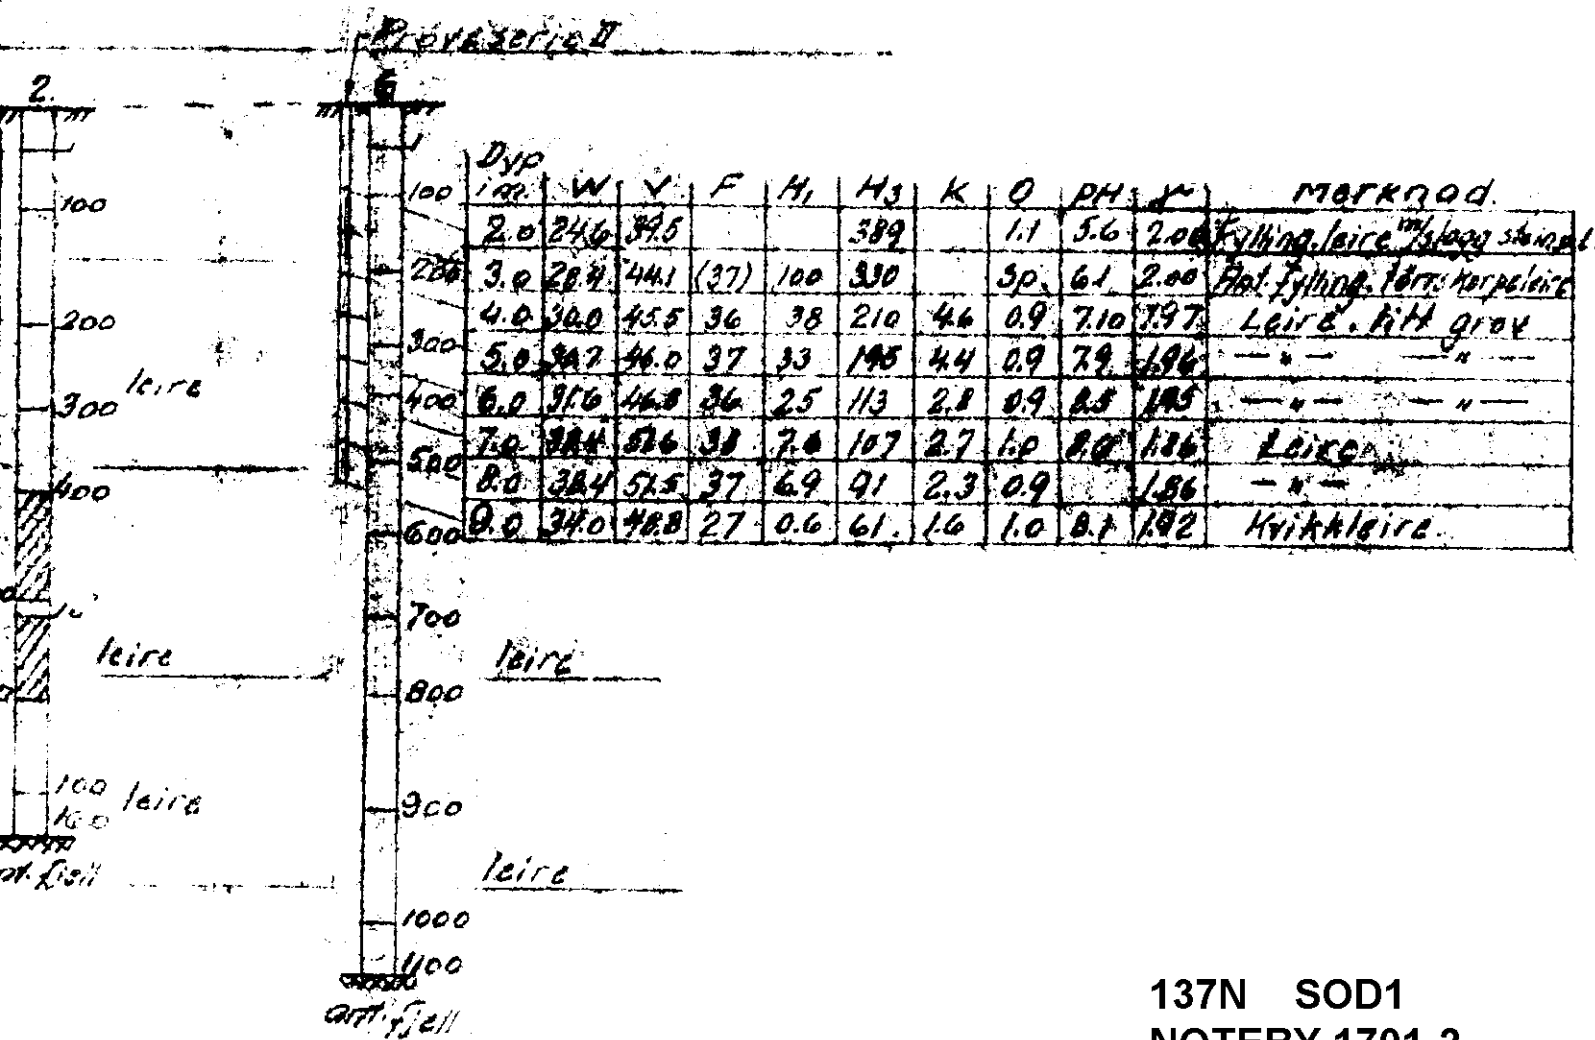 Prøveserie II
2.
100
200
300
400
leire
leire
100
100
leire
ant. fjell
1
100
200
300
400
500
600
700
800
900
1000
1100
ant. fjell
leire
leire
Dyp i m. W V F H1 H3 K O pH γ Merknad.
2.0 24.6 39.5 389 1.1 5.6 2.06 Fylling, leire m/slagg
3.0 28.4 44.1 (37) 100 330 Sp. 6.1 2.00 Ant. fylling, tørrskorpeleire
4.0 30.0 45.5 36 38 210 4.6 0.9 7.10 1.97 Leire, litt grov
5.0 30.7 46.0 37 33 195 4.4 0.9 7.9 1.96 — " — — " —
6.0 31.6 46.8 36 25 113 2.8 0.9 8.5 1.95 — " — — " —
7.0 38.4 51.6 38 7.6 107 2.7 1.0 8.0 1.86 Leire
8.0 38.4 51.5 37 6.9 91 2.3 0.9 1.86 — " —
9.0 34.0 48.8 27 0.6 61. 1.6 1.0 8.1 1.92 Kvikkleire.
137N SOD1
NOTEBY 1701-2